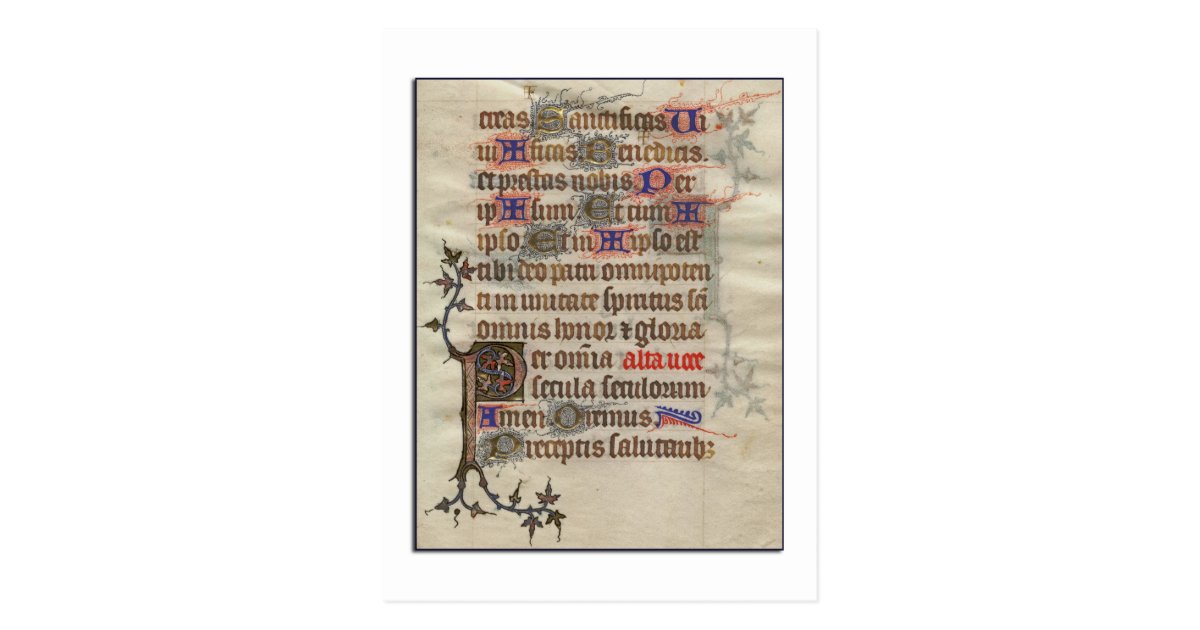 creas Sanctificas Ui
ui ✠ ficas. Benedicis.
et prestas nobis. Per
ip ✠ sum Et cum ✠
ipso. Et in ✠ ipso est
tibi deo patri omnipoten
ti in unitate spiritus sci
omnis honor ⁊ gloria
Per omia alta uoce
secula seculorum
Amen Oremus
Preceptis salutarib⁊